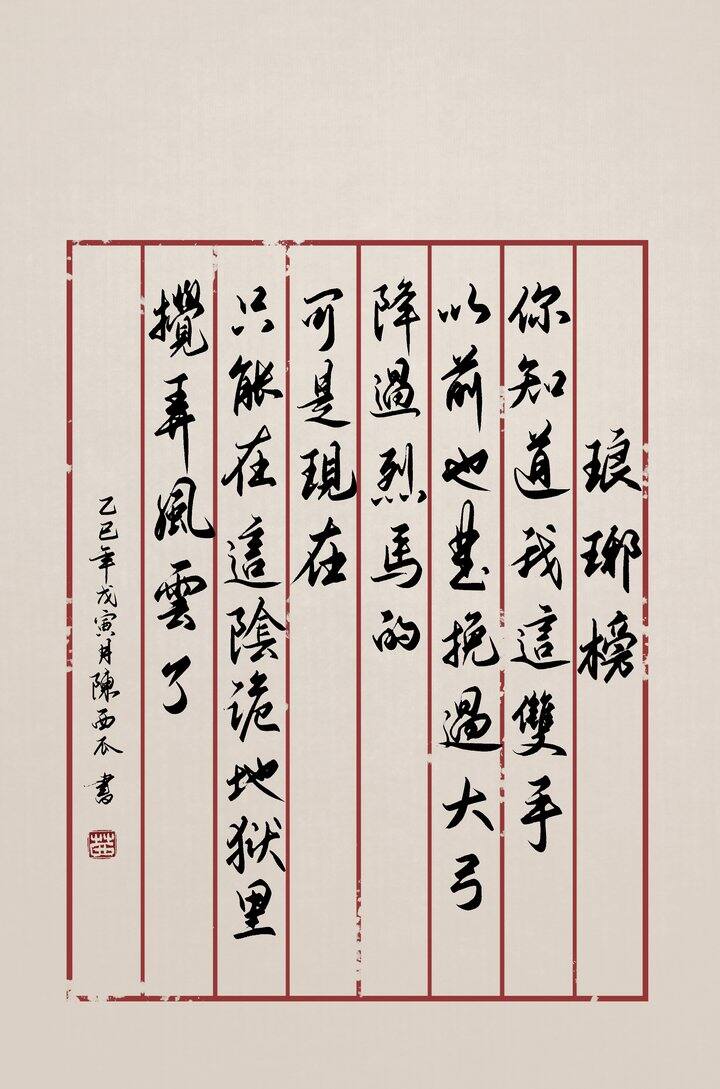 琅琊榜
你知道我這雙手
以前也曾挽過大弓
降過烈馬的
可是現在
只能在這陰詭地獄里
攪弄風雲了
乙巳年戊寅月陳西 書